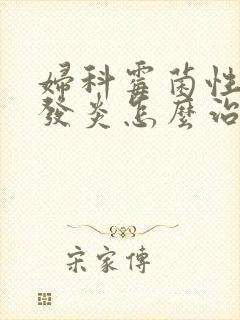 婦科霉菌性
發炎怎麼治
宋家傳